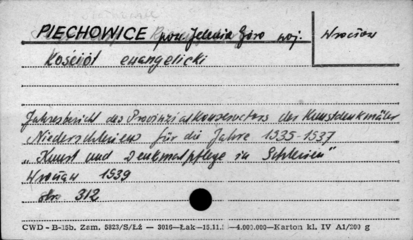 PIECHOWICE pow. Jelenia Góra woj. Wrocław
Kościół evangelicki
Jahresbericht des Provinzialkonservators der Kunstdenkmäler
Niederschlesien für die Jahre 1935-1937
„Kunst und Denkmalpflege in Schlesien"
Wrocław 1939
str. 312
CWD - B-15b. Zam. 5823/S/Łż — 3016—Łak—15.11. —4.000.000—Karton kl. IV A1/200 g